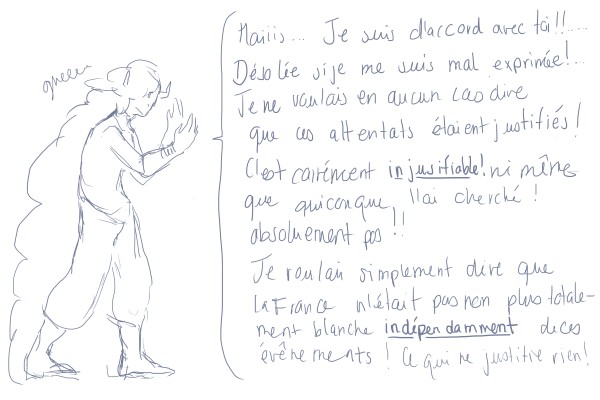 queeu
Maiiis... Je suis d'accord avec toi!!....
Désolée si je me suis mal exprimée!..
Je ne voulais en aucun cas dire
que ces attentats étaient justifiés!
C'est carrément injustifiable! ni même
que quiconque l'ai cherché!
absoluement pas!!
Je voulais simplement dire que
la France n'était pas non plus totale-
ment blanche indépendamment de ces
évênements! Ce qui ne justifie rien!